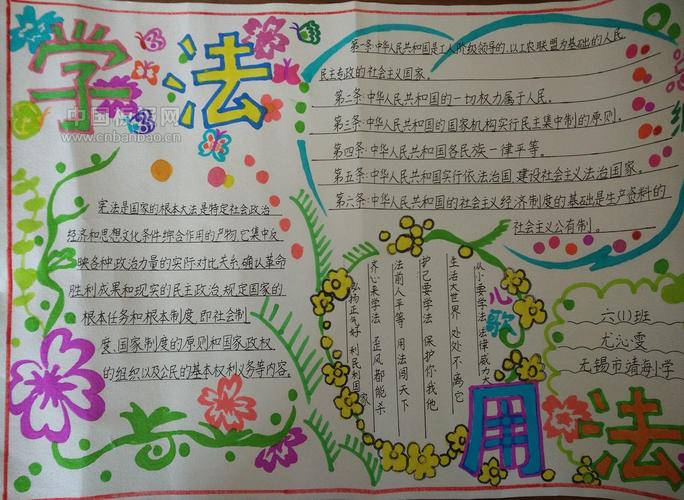 学法
中国板报网
www.cnbanbao.cn
宪法是国家的根本大法是特定社会政治
经济和思想文化条件综合作用的产物,它集中反
映各种政治力量的实际对比关系,确认革命
胜利成果和现实的民主政治,规定国家的
根本任务和根本制度,即社会制
度、国家制度的原则和国家政权
的组织以及公民的基本权利义务等内容。
第一条:中华人民共和国是工人阶级领导的,以工农联盟为基础的人民
民主专政的社会主义国家。
第二条:中华人民共和国的一切权力属于人民。
第三条:中华人民共和国的国家机构实行民主集中制的原则。
第四条:中华人民共和国各民族一律平等。
第五条:中华人民共和国实行依法治国,建设社会主义法治国家。
第六条:中华人民共和国的社会主义经济制度的基础是生产资料的
社会主义公有制。
心歌
从小要学法法律威力大
生活大世界 处处不离它
护己要学法 保护你我他
法前人平等 用法闯天下
齐心来学法 歪风都能杀
弘扬正气好 利民利国家
六(1)班
尤沁雯
无锡市靖海小学
用法